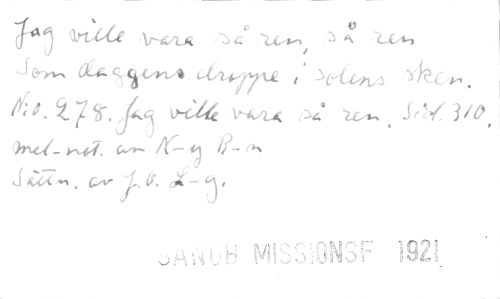 Jag ville vara så ren, så ren
Som daggens droppe i solens sken.
N:o. 278. Jag ville vara så ren. Sid. 310.
mel-not. av K-g B-n
Sättn. av J. O. L-g.
SANGB MISSIONSF 1921